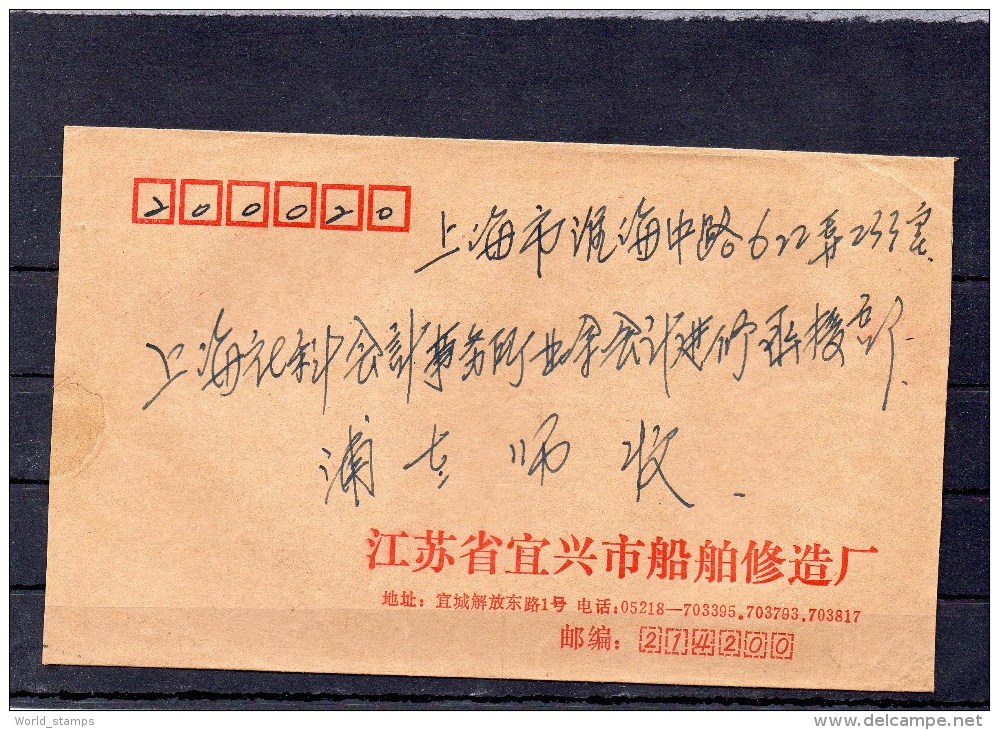 200020
上海市淮海中路622弄233室.
上海社科会计事务所业余会计进修函授部.
浦老师 收.
江苏省宜兴市船舶修造厂
地址：宜城解放东路1号 电话:05218—703395.703793.703817
邮编：214200
World_stamps
delcampe.net